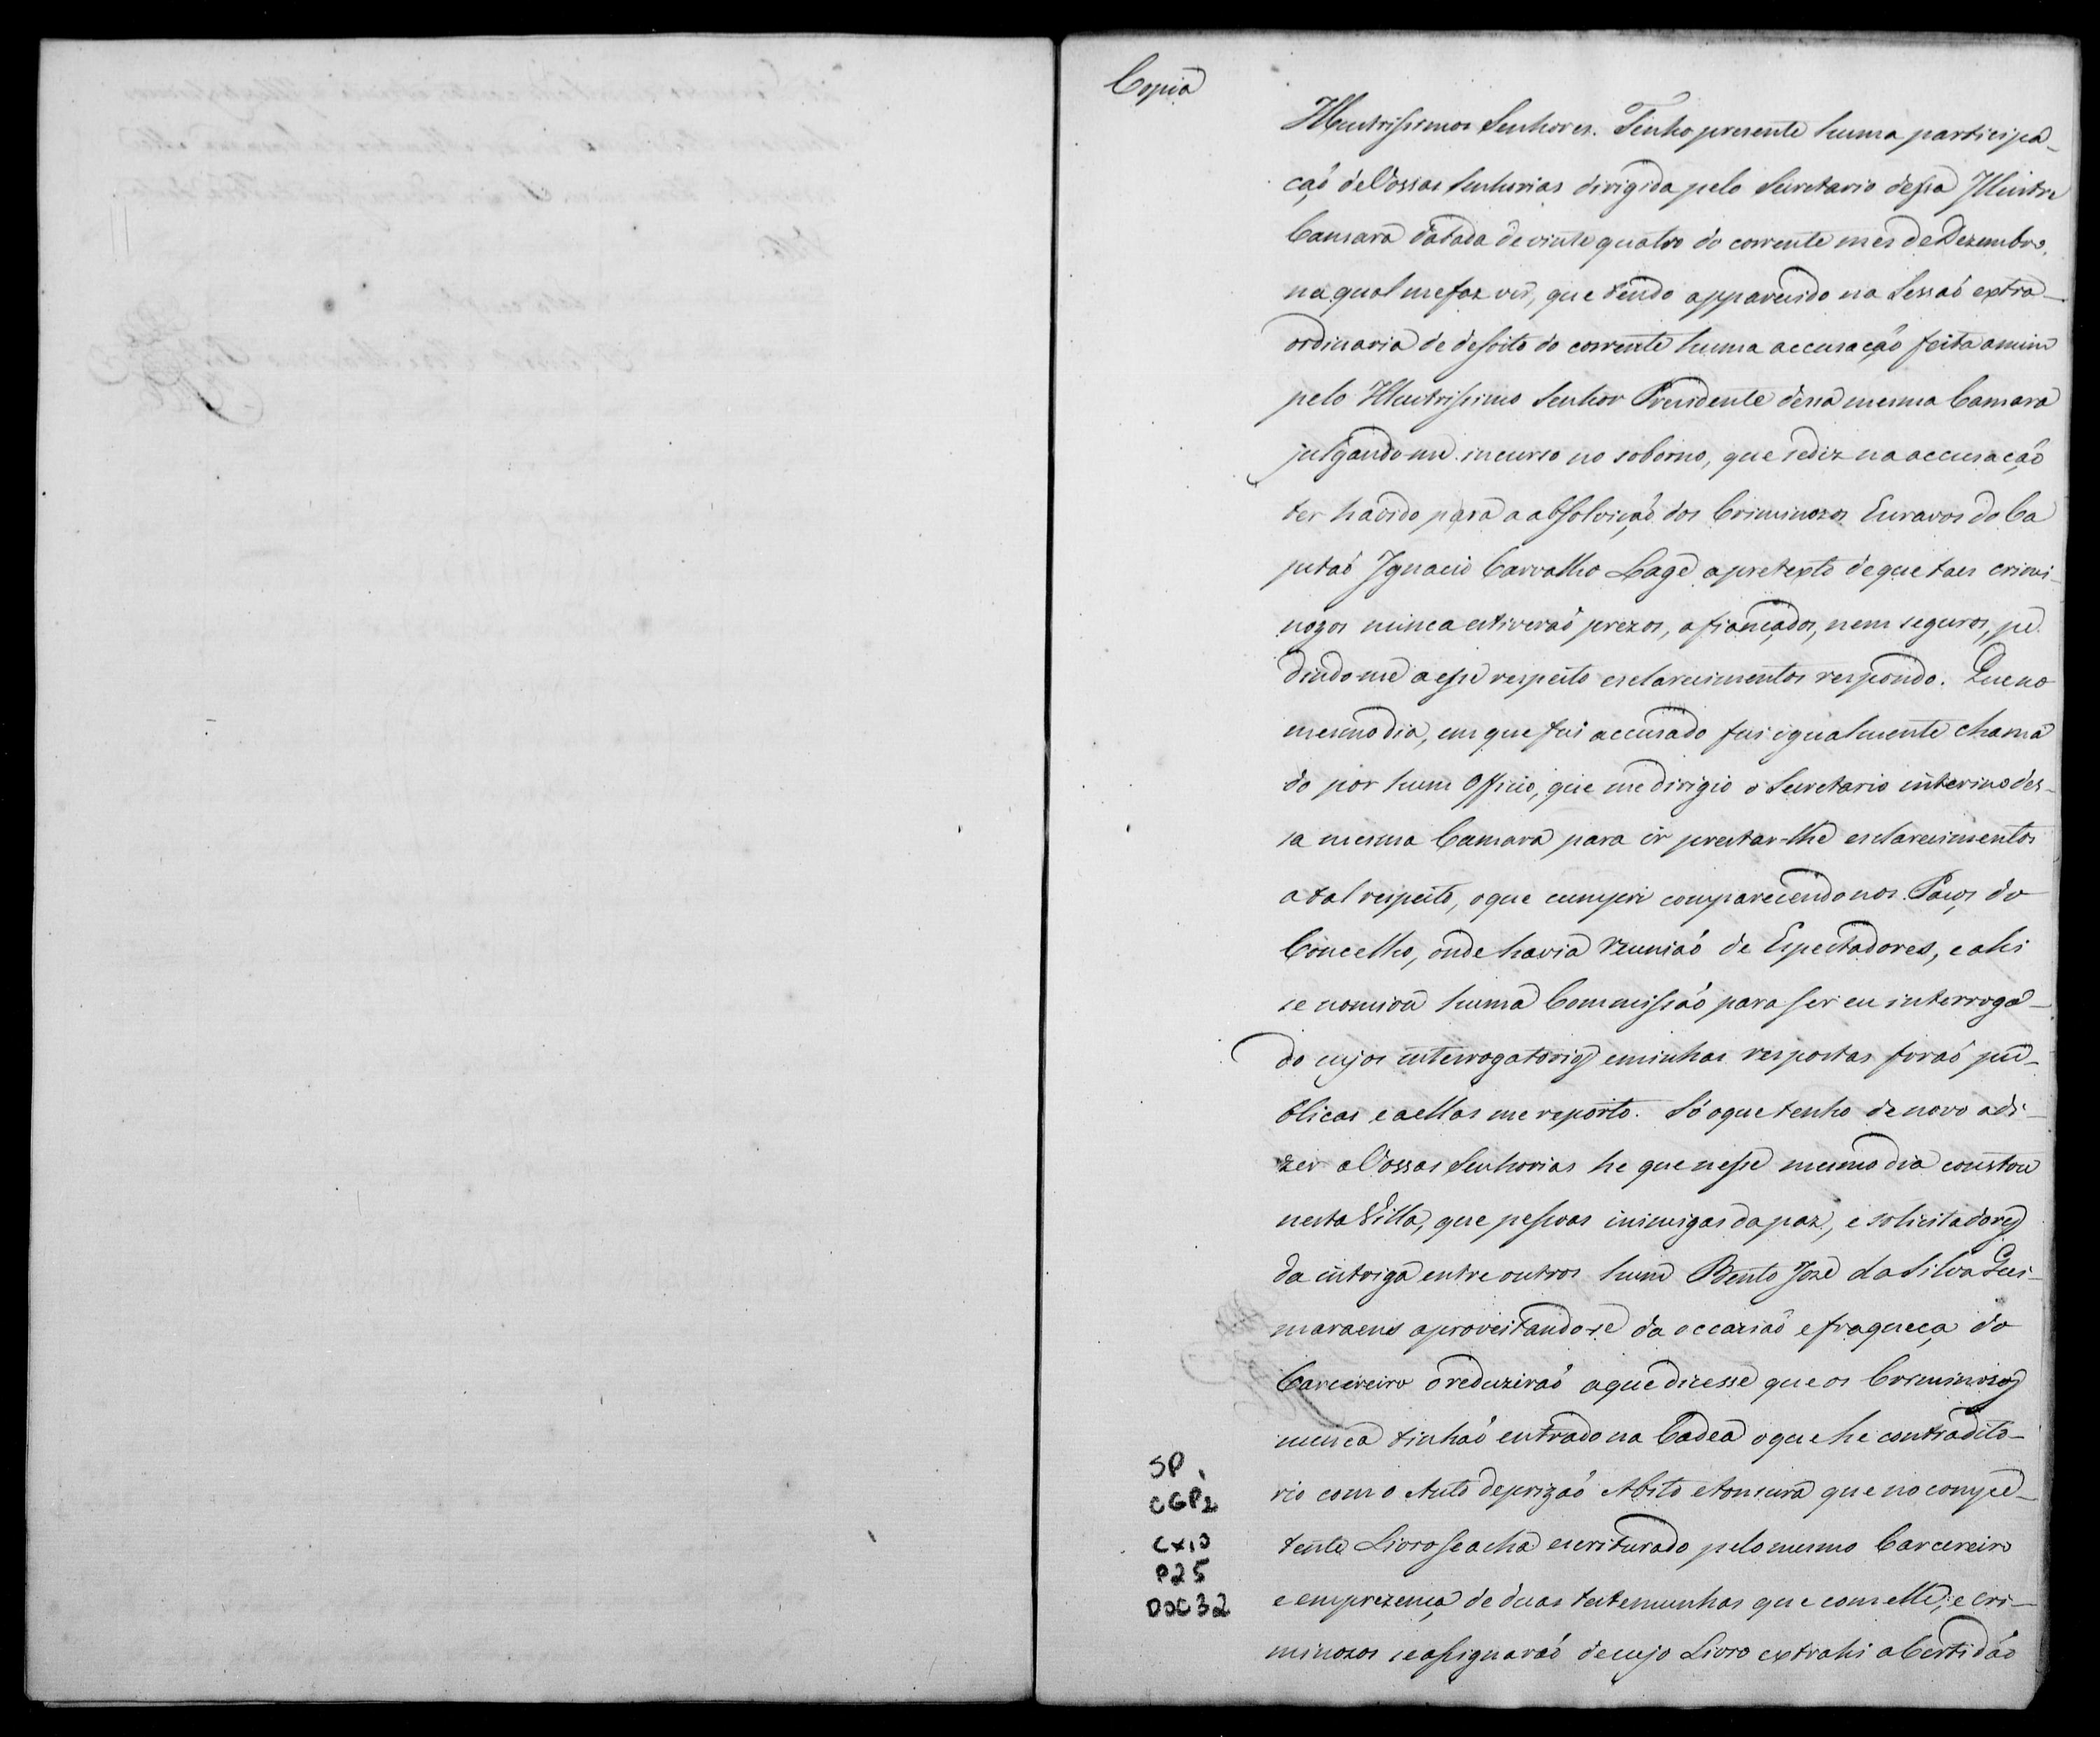 Copia
Illustrissimos Senhores. Tenho presente huma participa-
çaõ de Vossas Senhorias dirigida pelo Secretario dessa Illustre
Camara datada de vinte quatro do corrente mes de Dezembro,
na qual me faz ver, que tendo apparecido na Sessaõ extra-
ordinaria de desoito do corrente huma accusaçaõ feita a mim
pelo Illustrissimo Senhor Presidente dessa mesma Camara
julgando-me incurso no soborno, que se diz na accusaçaõ
ter havido para a absolviçaõ dos Criminozos Escravos do Ca
pitaõ Ignacio Carvalho Lage a pretexto de que taes crimi-
nozos nunca estiveraõ prezos, afiançados, nem seguros, pe
dindo-me a esse respeito esclarecimentos respondo. Que no
mesmo dia, em que fui accusado fui igualmente chama
do por hum Officio, que me dirigio o Secretario interino des-
sa mesma Camara para ir prestar-lhe esclarecimentos
a tal respeito, o que cumpri comparecendo nos Paços do
Concelho, onde havia reuniaõ de Espectadores, e ahi
se nomiou huma Commissaõ para ser eu interroga-
do cujos interrogatorios e minhas respostas foraõ pu-
blicas e a ellas me reporto. Só o que tenho de novo a di-
zer a Vossas Senhorias he que nesse mesmo dia constou
nesta Villa, que pessoas inimigas da paz, e solicitadores
da intriga entre outros hum Bento Jozé da Silva Gui-
maraens aproveitando-se da occaziaõ e fraqueça do
Carcereiro o reduziraõ a que dicesse que os Criminosos
nunca tinhaõ entrado na Cadea o que he contradito-
rio com o Auto de prizaõ Abito e tonsura que no compe-
tente Livro se acha escriturado pelo mesmo Carcereiro
e em prezença de duas testemunhas que com elle, e cri-
minozos se assignaraõ de cujo Livro extrahi a Certidaõ
SP
CGP2
CX10
P25
DOC32